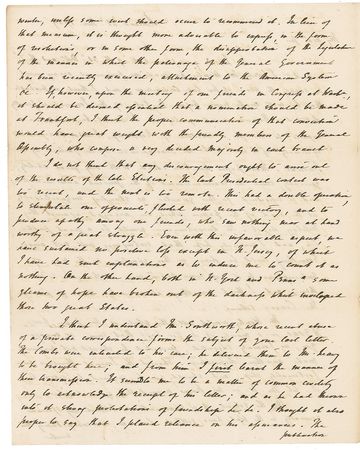 unless some event should occur to recommend it. In lieu of
that measure, it is thought more advisable to express, in the form
of resolutions, or in some other form, the disapprobation of the Legislature
of the manner in which the patronage of the General Government
has been recently exercised, attachment to the American System
&c. If, however, upon the meeting of our friends in Congress at Wash.
it should be deemed essential that a nomination should be made
at Frankfort, I think the proper communication of that conviction
would have great weight with the friendly members of the General
Assembly, who compose a very decided majority in each branch.
I do not think that any discouragement ought to arise out
of the results of the late Elections. The last Presidential contest was
too recent, and the next is too remote. This had a double operation,
to stimulate our opponents, flushed with recent victory, and to
produce apathy among our friends, who saw nothing near at hand
worthy of a great struggle. Even with this unfavorable aspect, we
have sustained no positive loss except in N. Jersey, of which
I have had such explanations as to induce me to count it as
nothing. On the other hand, both in N. York and Penns.a some
gleams of hope have broken out of the darkness which enveloped
those two great States.
I think I understand Mr. Southworth, whose recent abuse
of a private correspondence forms the subject of your last letter.
The Combs were intrusted to his care; he delivered them to Mr.
to be brought here; and from him I first learnt the manner of
their transmission. It seemed to me to be a matter of common civility
only to acknowledge the receipt of his letter; and as he had thrown
into it strong protestations of friendship &c. &c. I thought it also
proper to say that I placed reliance on his assurances. The
publication